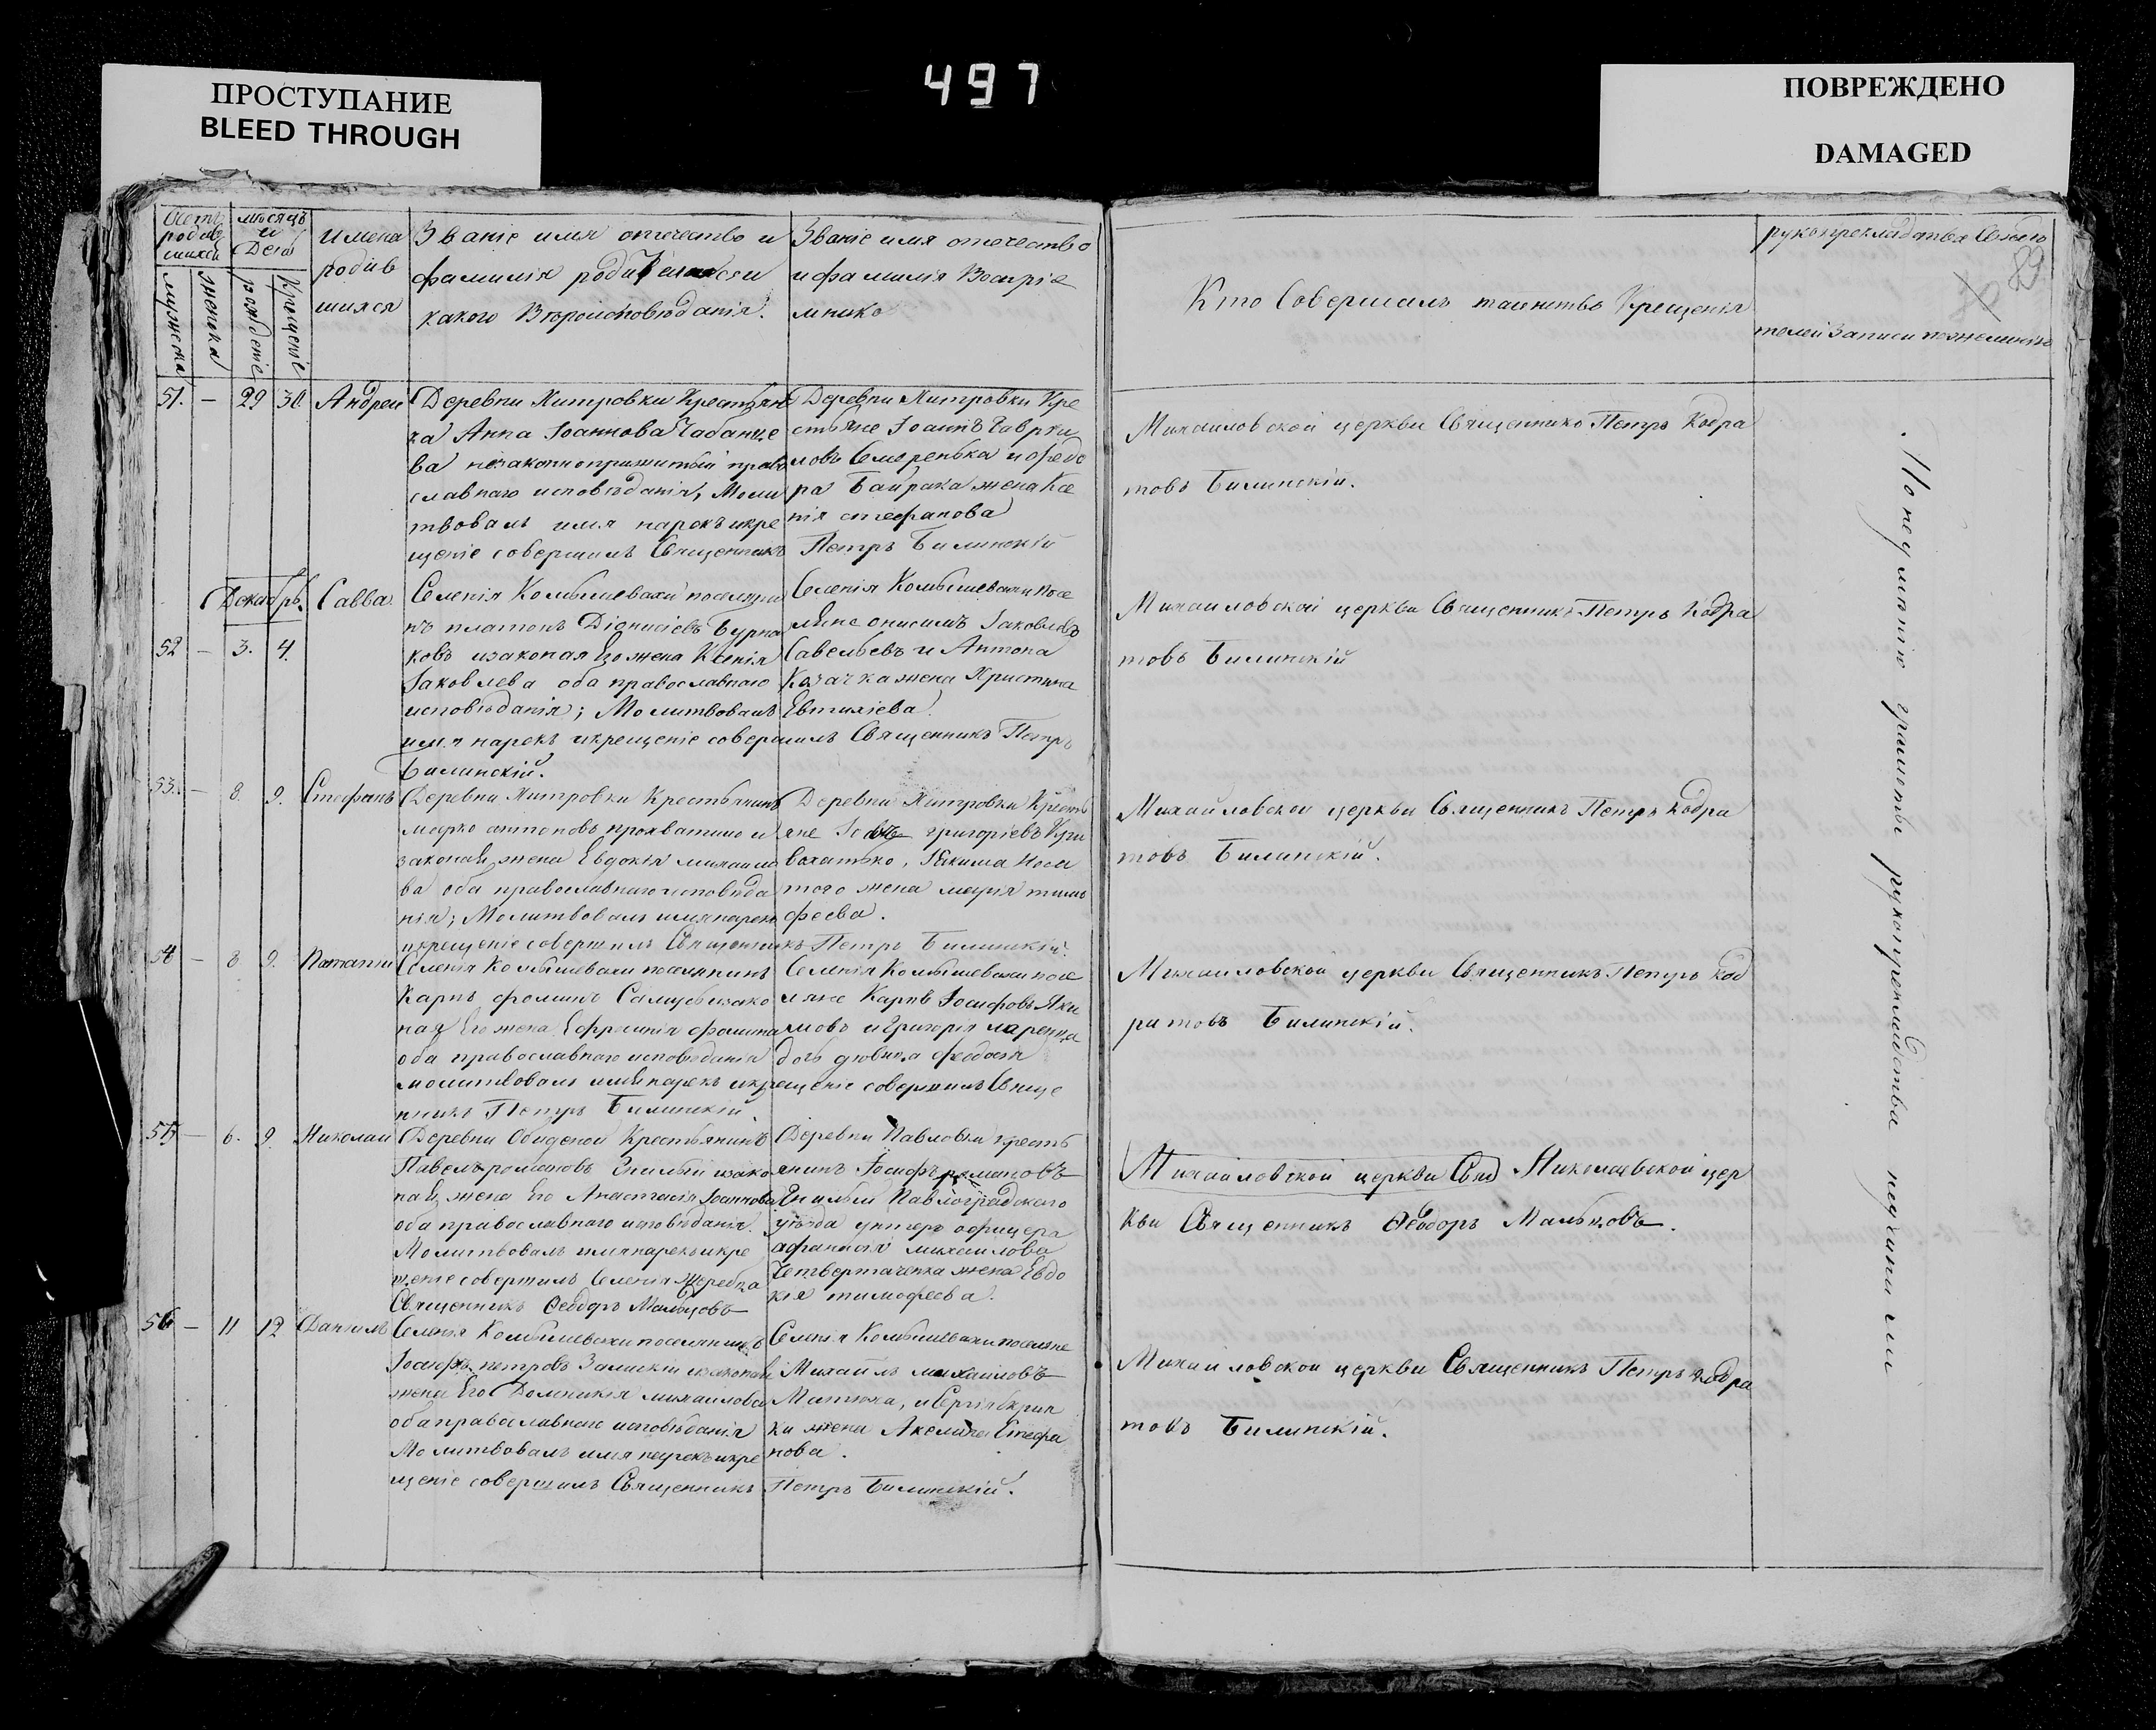 497
ПРОСТУПАНИЕ
BLEED THROUGH
ПОВРЕЖДЕНО
DAMAGED
мѣсяцъ
и
имена
родив
шихся
Званіе имя отечество и
фамилія
какого Вѣроисповѣданія.
Званіе имя отечество
и фамилія Воспріе
мнико
мужеска
женска
рожденіе
крещеніе
Кто Совершалъ таинство Крещенія
рукоприкладства
89
телей записи по желанію
51. — 29 30. Андреи
Деревни Хитровки Крестьян
ка Анна Іоаннова
ва незаконноприжитый право
славнаго исповѣданія, Моли
твовалъ имя нарекъ и кре
щеніе совершилъ Священникъ
Деревни Хитровки Кре
стьяне Іоаннъ Гаври
ловъ и Федо
ра Байрака жена Ксе
нія стефанова
Петръ Билинскій
Михаиловской церкви Священникъ Петръ Кодра
товъ Билинскій.
Декабрь.
52 — 3. 4. Савва.
Селенія Комышевахи поселяни
нъ платонъ Діонисіевъ Бурна
ковъ и законая Его жена Ксенія
Іаковлева оба православнаго
исповѣданія; Молитвовалъ
имя нарекъ и крещеніе совершилъ Священникъ Петръ
Билинскій.
Селенія Комышевахи посе
ляне онисимъ Іаковлевъ
Савельевъ и Антона
Козачка жена Христина
Евтихіева.
Михаиловской церкви Священникъ Петръ Кодра
товъ Билинскій
53. — 8. 9. Стефанъ
Деревни Хитровки Крестьянинъ
марко антоновъ прохватило и
законая жена Евдокія михаило
ва оба православнаго исповѣда
нія; Молитвовалъ имя нарекъ
и крещеніе совершилъ Священникъ Петръ Билинскій.
Деревни Хитровки Кресть
яне григоріевъ Кри
вохатько, Якима Носа
того жена марія тимо
феева.
Михаиловской церкви Священникъ Петръ Кодра
товъ Билинскій.
54 — 8 9. Потапи
Селенія Комышевахи поселянинъ
Карпъ фоминъ и зако
ная Его жена Ефросинія фомина
оба православнаго исповѣданія
молитвовалъ имя нарекъ и крещеніе совершилъ Свяще
нникъ Петръ Билинскій.
Селенія Комышевахи посе
ляне Карпъ Іосифовъ Яки
мовъ и Григорія
феодосія
Михаиловской церкви Священникъ Петръ Код
ратовъ Билинскій.
55 — 6. 9. Николаи
Деревни Обиденой Крестьянинъ
Павелъ романовъ Гнилый и зако
ная жена Его Анастасія Іоаннова
оба православнаго исповѣданія.
Молитвовалъ имя нарекъ и кре
щеніе совершилъ Селенія Жеребца
Священникъ Феодоръ Мальцовъ
Деревни Павловки кресть
янинъ Іосифъ романовъ
Гнилый Павлоградского
уѣзда унтеръ офицера
афанасія михаилова
Четвертаченка жена Евдо
кія тимофеева.
Михаиловской церкви Свщ Николаевской цер
кви Священникъ Феодоръ Мальцовъ.
56 — 11 12 Даніилъ
Селенія Комышевахи поселянинъ
Іосифъ петровъ и законая
жена Его Домникія михаилова
оба православнаго исповѣданія
Молитвовалъ имя нарекъ и кре
щеніе совершилъ Священникъ
Селенія Комышевахи поселяне
Михаилъ михаиловъ
Матюха, и Сергія Скрип
ки жена Акелина Стефа
нова.
Петръ Билинскій.
Михаиловской церкви Священникъ Петръ Кодра
товъ Билинскій.
По неумѣнію грамоты рукоприкладства неучинили